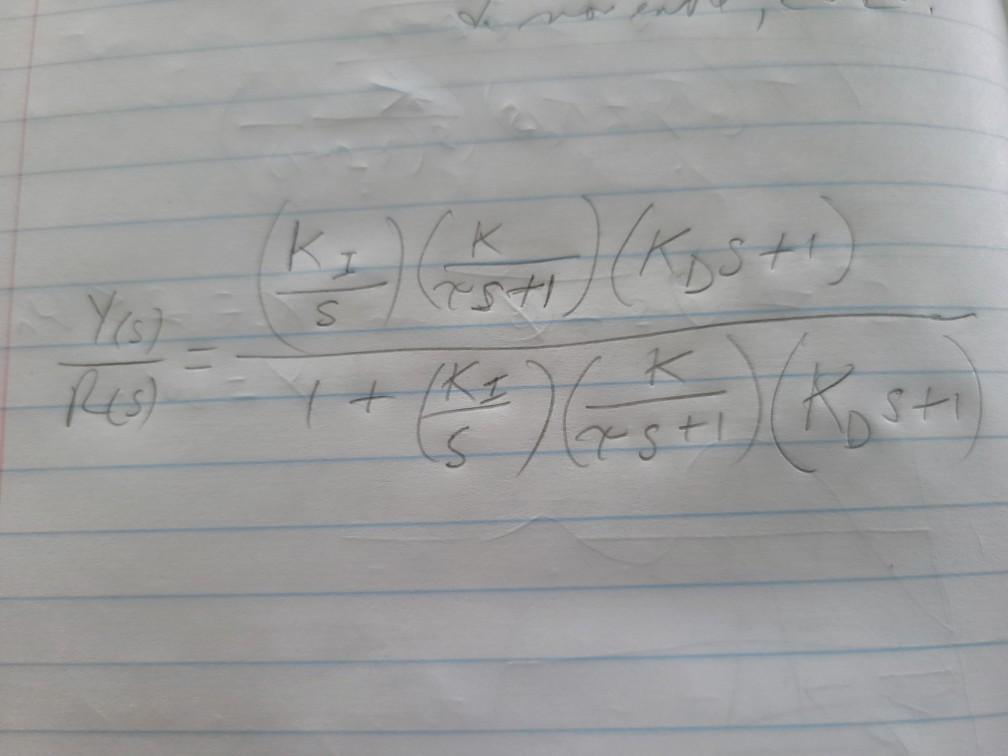 Y(s)/R(s) = (K_I/s)(K/τs+1)(K_D s+1) / 1 + (K_I/s)(K/τs+1)(K_D s+1)